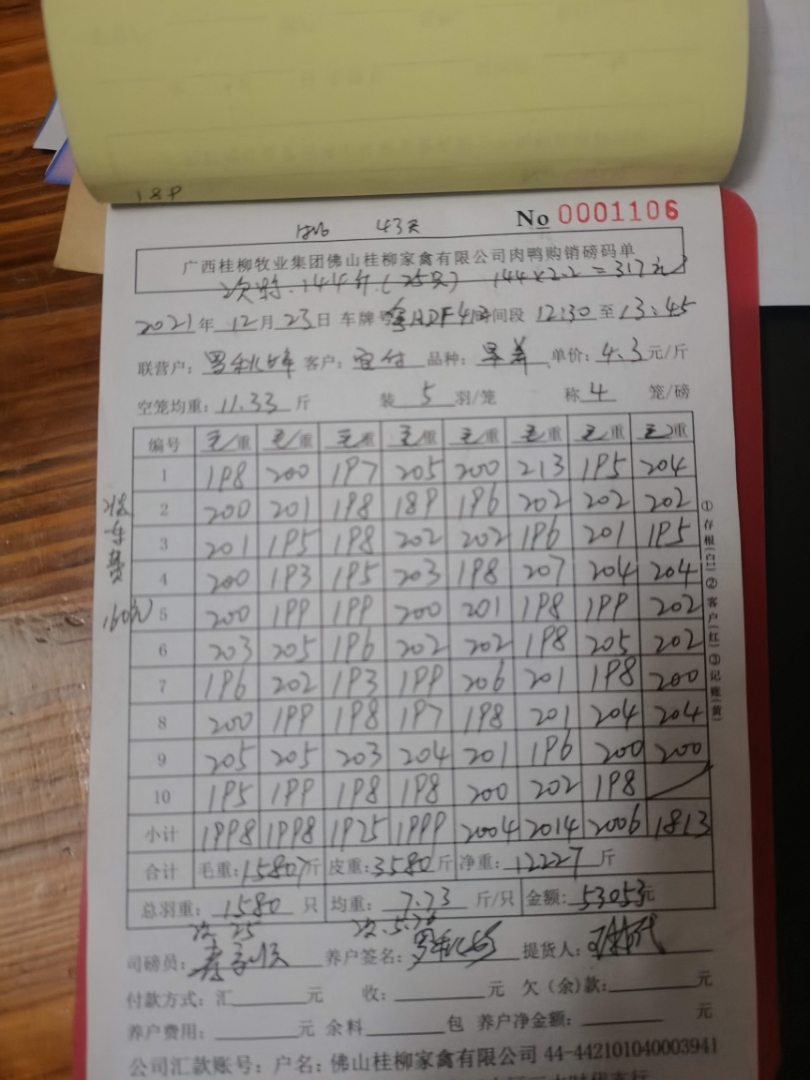 189
43天
No 0001106
广西桂柳牧业集团佛山桂柳家禽有限公司肉鸭购销磅码单
次特.144斤(25只) 144×2.2=317元
2021年12月23日 车牌号 时间段 12:30至13:45
联营户: 客户: 品种: 单价:4.3元/斤
空笼均重:11.33斤 装5羽/笼 称4笼/磅
编号 毛/重 毛/重 毛/重 毛/重 毛/重 毛/重 毛/重 毛/重
1 198 200 197 205 200 213 195 204
2 200 201 198 189 196 202 202 202
3 201 195 198 202 202 196 201 195
4 200 193 195 203 198 207 204 204
5 200 199 199 200 201 198 199 202
6 203 205 196 202 202 198 205 202
7 196 202 193 199 206 201 198 200
8 200 199 198 197 198 201 204 204
9 205 205 203 204 201 196 200 200
10 195 199 198 198 200 202 198
小计 1998 1998 1925 1999 2004 2014 2006 1813
合计 毛重:15807斤 皮重:3580斤 净重:12227斤
总羽重:1580只 均重:7.73斤/只 金额:53053元
次 25 次.5.76
司磅员: 养户签名: 提货人:
付款方式:汇元 收:元 欠(余)款:元
养户费用:元 余料包 养户净金额:元
公司汇款账号:户名:佛山桂柳家禽有限公司 44-442101040003941
装车费
160元
①存根(白)②客户(红)③记账(黄)